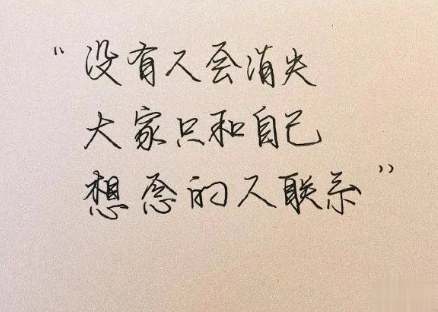 “没有人会消失
大家只和自己
想念的人联系”